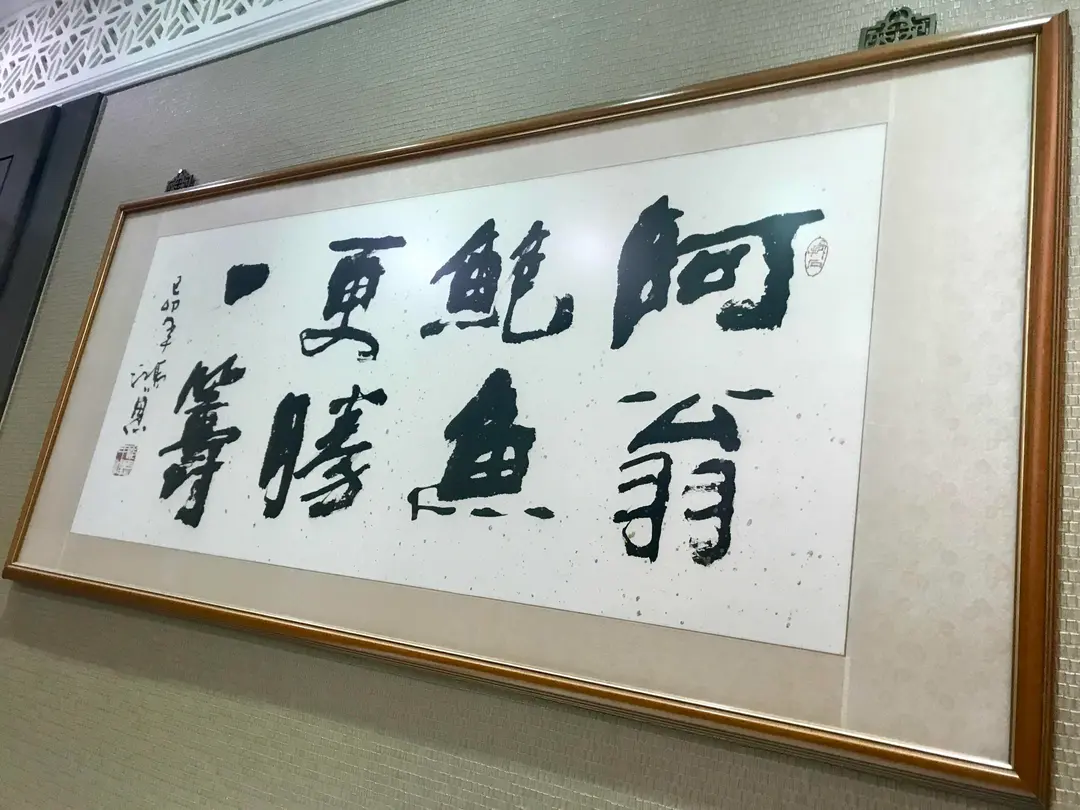 阿翁
鮑魚
更勝
一籌
己卯年 鴻恩